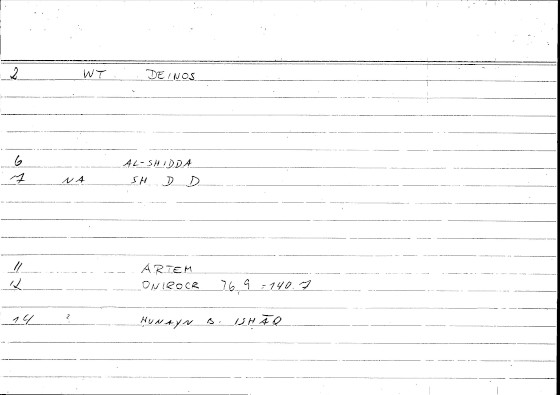 2 WT DEINOS
6 AL-SHIDDA
7 NA SH D D
11 ARTEM
12 ONIROCR 76,9 = 140.7
14 ? ḤUNAYN B. ISḤĀQ